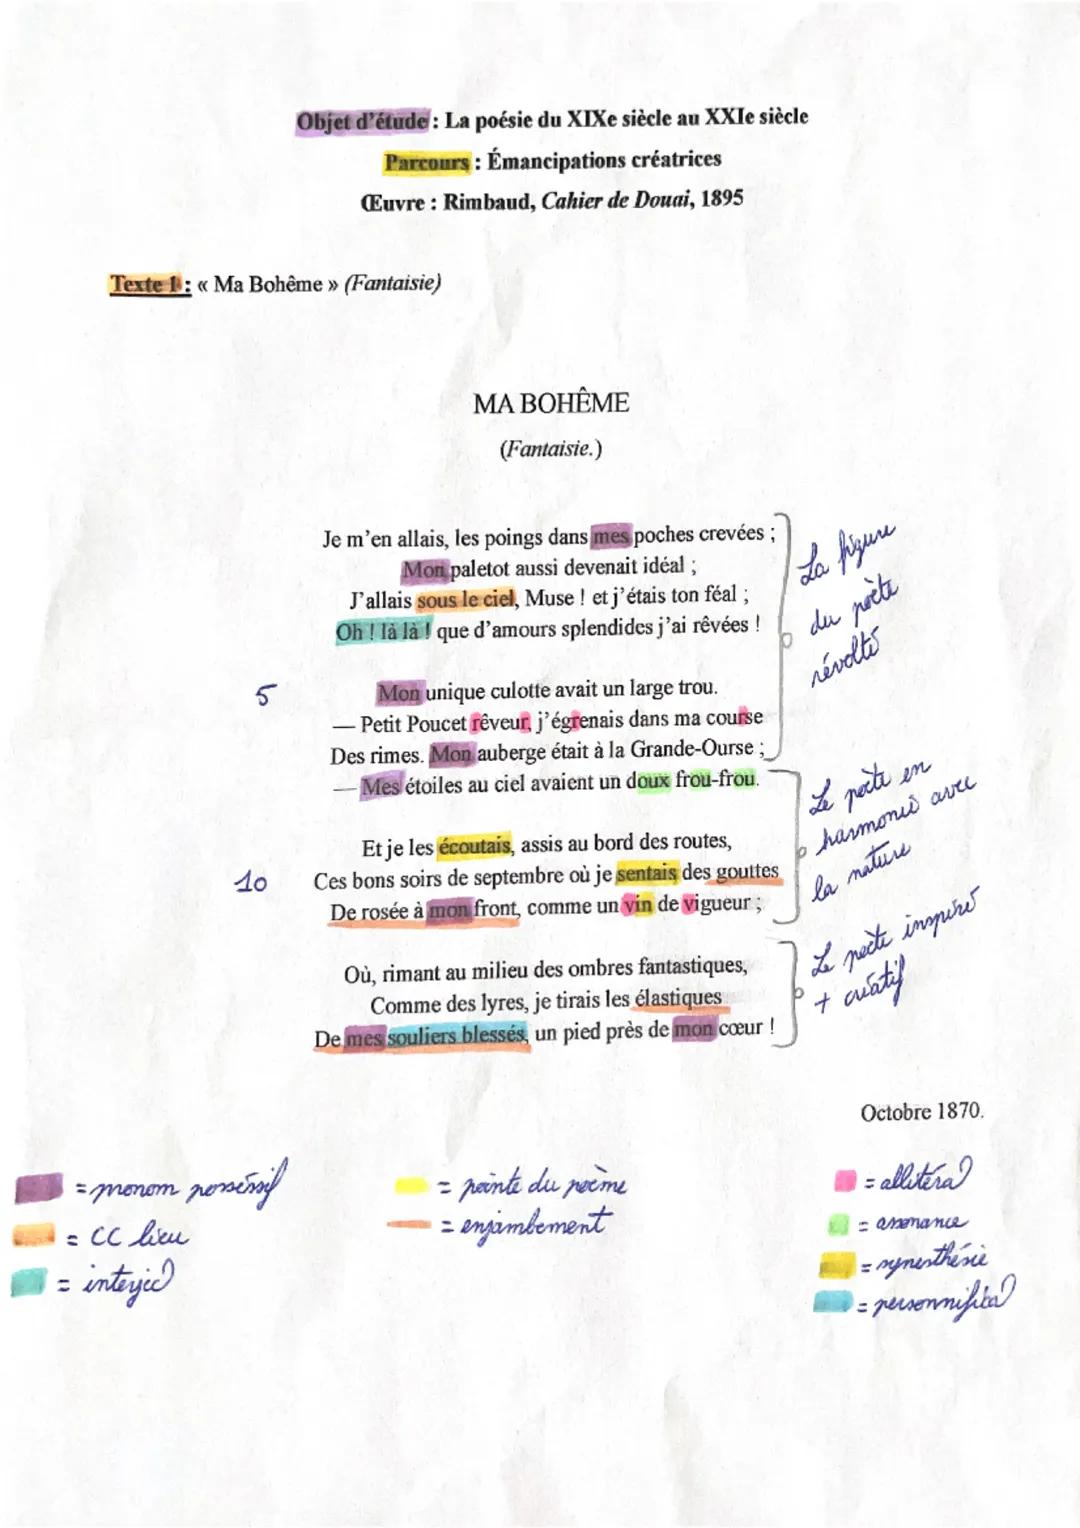 Objet d'étude : La poésie du XIXe siècle au XXIe siècle
Parcours : Émancipations créatrices
Œuvre : Rimbaud, Cahier de Douai, 1895
Texte 1 : « Ma Bohême » (Fantaisie)
MA BOHÊME
(Fantaisie.)
Je m'en allais, les poings dans mes poches crevées ;
Mon paletot aussi devenait idéal ;
J'allais sous le ciel, Muse ! et j'étais ton féal ;
Oh ! là là ! que d'amours splendides j'ai rêvées !
La figure
du poète
révolté
5
Mon unique culotte avait un large trou.
— Petit Poucet rêveur, j'égrenais dans ma course
Des rimes. Mon auberge était à la Grande-Ourse ;
— Mes étoiles au ciel avaient un doux frou-frou.
Le poète en
harmonie avec
la nature
Et je les écoutais, assis au bord des routes,
10
Ces bons soirs de septembre où je sentais des gouttes
De rosée à mon front, comme un vin de vigueur ;
Le poète inspiré
+ créatif
Où, rimant au milieu des ombres fantastiques,
Comme des lyres, je tirais les élastiques
De mes souliers blessés, un pied près de mon cœur !
Octobre 1870.
= pronom possessif
= CC lieu
= interjec°
= pointe du poème
= enjambement
= allitéra°
= assonance
= synesthésie
= personnifica°